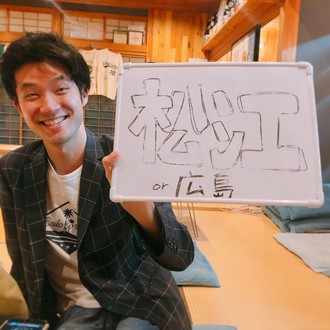 松江
or 広島